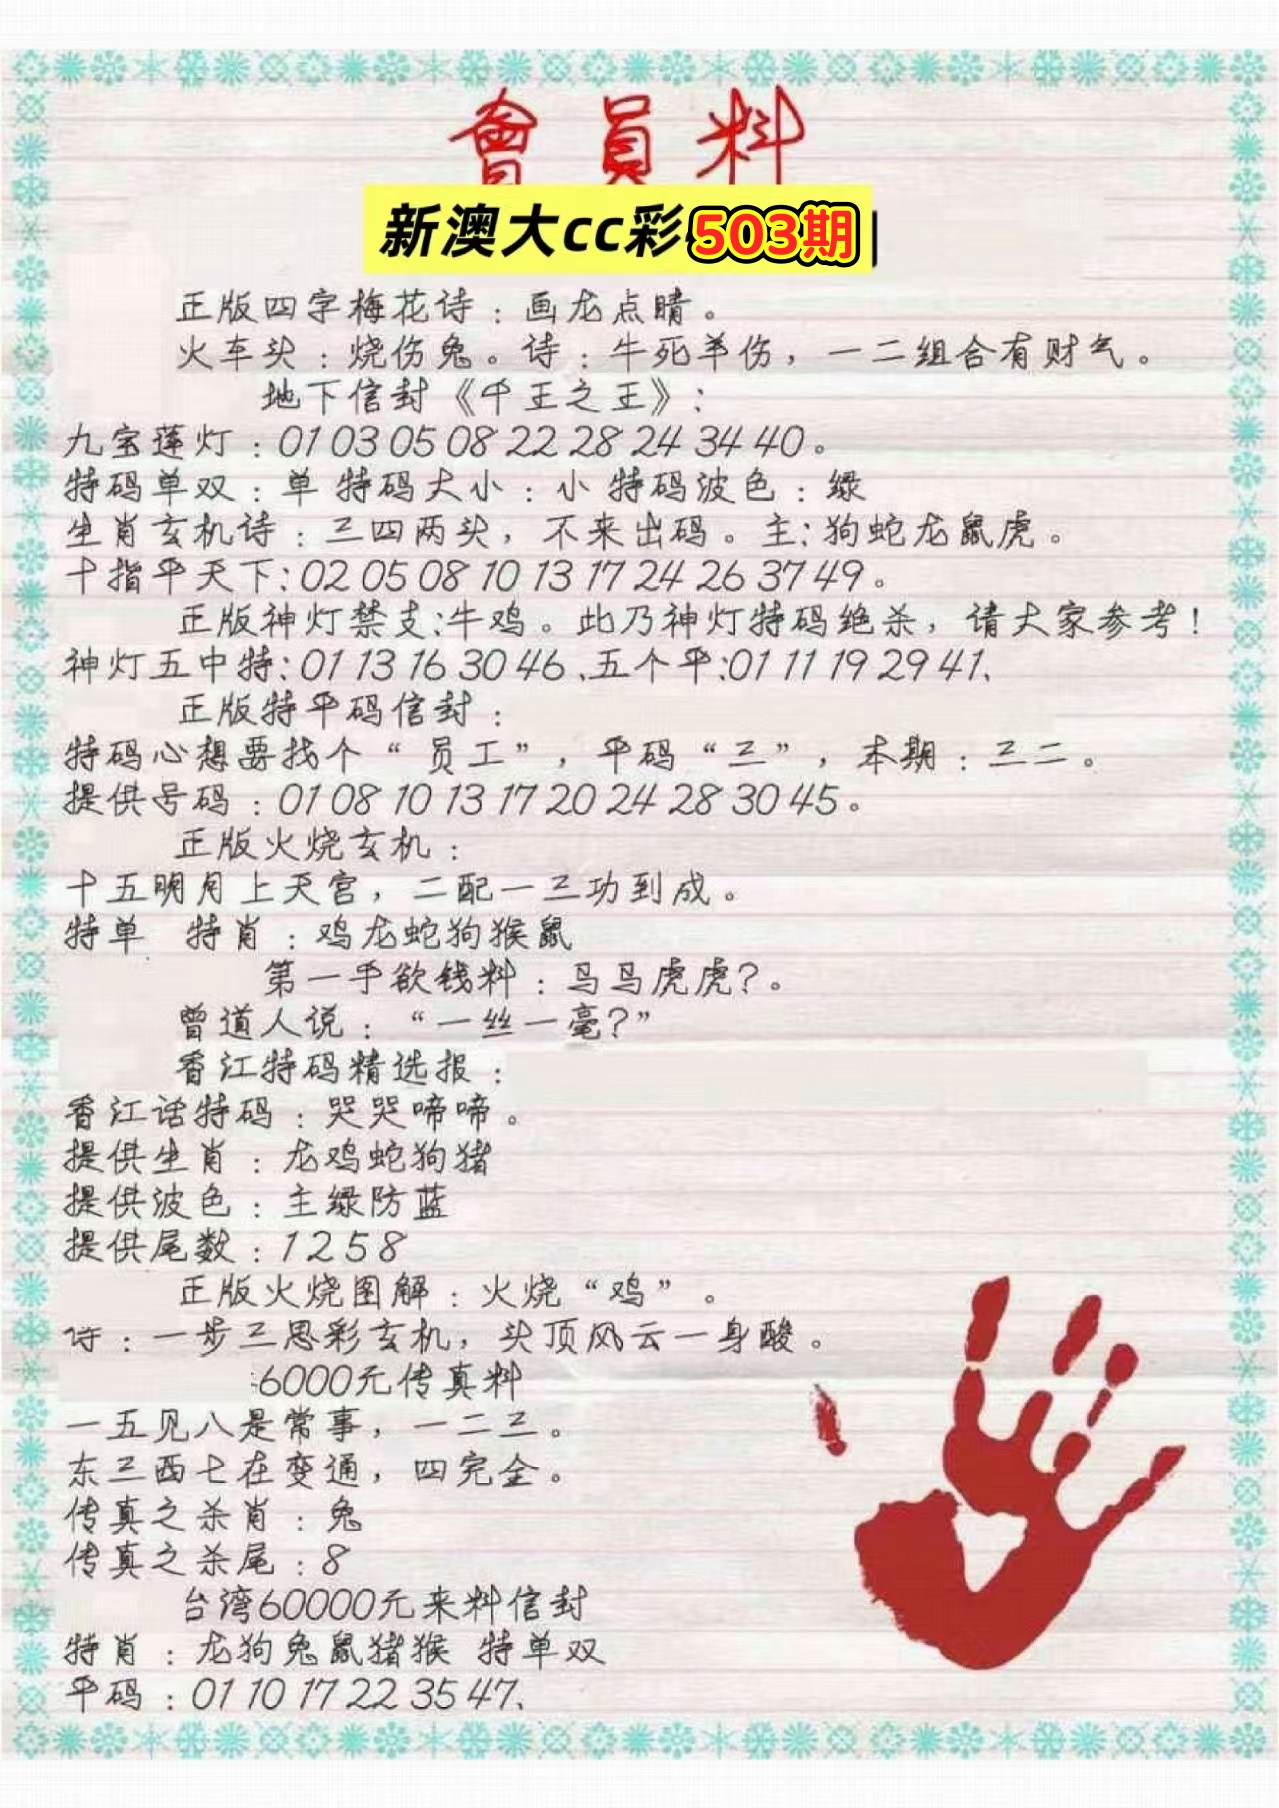 會員料
新澳大cc彩503期
正版四字梅花诗：画龙点睛。
火车头：烧伤兔。诗：牛死羊伤，一二组合有财气。
地下信封《千王之王》：
九宝莲灯：01 03 05 08 22 28 24 34 40。
特码单双：单 特码大小：小 特码波色：绿
生肖玄机诗：三四两头，不来出码。主：狗蛇龙鼠虎。
十指平天下：02 05 08 10 13 17 24 26 37 49。
正版神灯禁支：牛鸡。此乃神灯特码绝杀，请大家参考！
神灯五中特：01 13 16 30 46、五个平：01 11 19 29 41、
正版特平码信封：
特码心想要找个“员工”，平码“三”，本期：三二。
提供号码：01 08 10 13 17 20 24 28 30 45。
正版火烧玄机：
十五明月上天宫，二配一三功到成。
特单 特肖：鸡龙蛇狗猴鼠
第一手欲钱料：马马虎虎？。
曾道人说：“一丝一毫？”
香江特码精选报：
香江话特码：哭哭啼啼。
提供生肖：龙鸡蛇狗猪
提供波色：主绿防蓝
提供尾数：1 2 5 8
正版火烧图解：火烧“鸡”。
诗：一步三思彩玄机，头顶风云一身酸。
6000元传真料
一五见八是常事，一二三。
东三西七在变通，四完全。
传真之杀肖：兔
传真之杀尾：8
台湾60000元来料信封
特肖：龙狗兔鼠猪猴 特单双
平码：01 10 17 22 35 47、